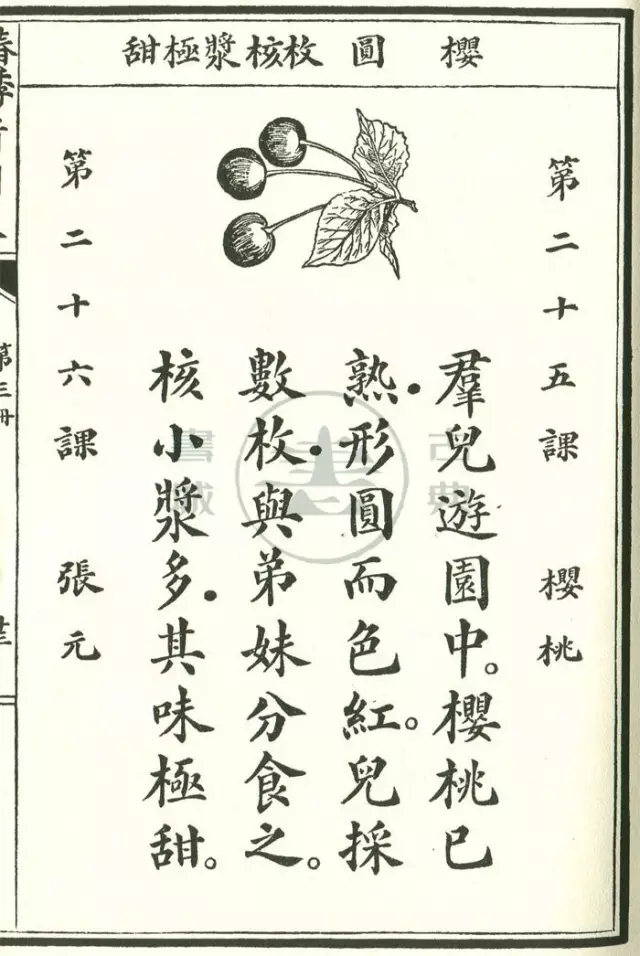 櫻　圓　枚核漿極甜
第二十五課　櫻桃
羣兒遊園中。櫻桃已
熟。形圓而色紅。兒採
數枚。與弟妹分食之。
核小漿多。其味極甜。
第二十六課　張元
第三冊
古典書城